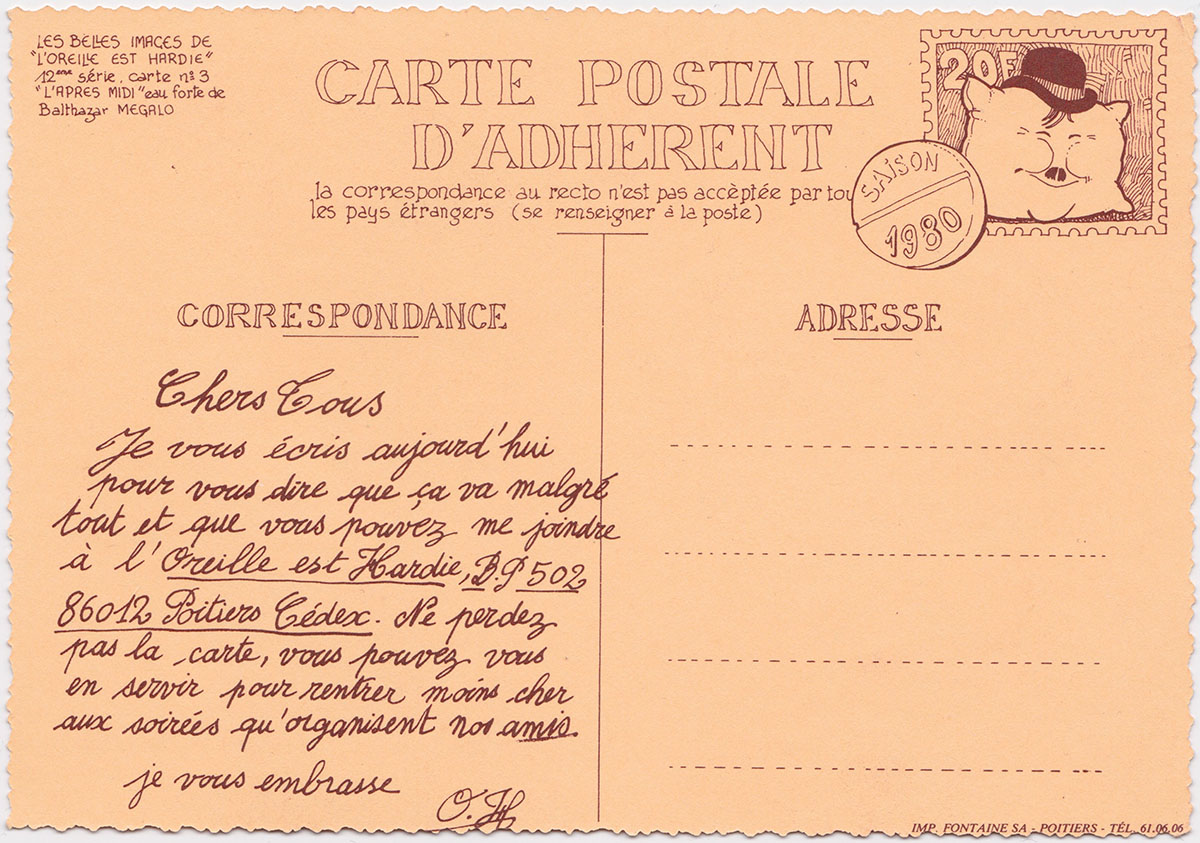 LES BELLES IMAGES DE
"L'OREILLE EST HARDIE"
12ème série, carte n°3
"L'APRES MIDI" eau forte de
Balthazar MEGALO
CARTE POSTALE
D'ADHERENT
la correspondance au recto n'est pas accèptée par tou
les pays étrangers (se renseigner à la poste)
20F
SAISON
1980
CORRESPONDANCE
ADRESSE
Chers Tous
Je vous écris aujourd'hui
pour vous dire que ça va malgré
tout et que vous pouvez me joindre
à l'Oreille est Hardie, B.P 502
86012 Poitiers Cédex. Ne perdez
pas la carte, vous pouvez vous
en servir pour rentrer moins cher
aux soirées qu'organisent nos amis.
je vous embrasse
O.H
IMP. FONTAINE SA - POITIERS - TÉL. 61.06.06